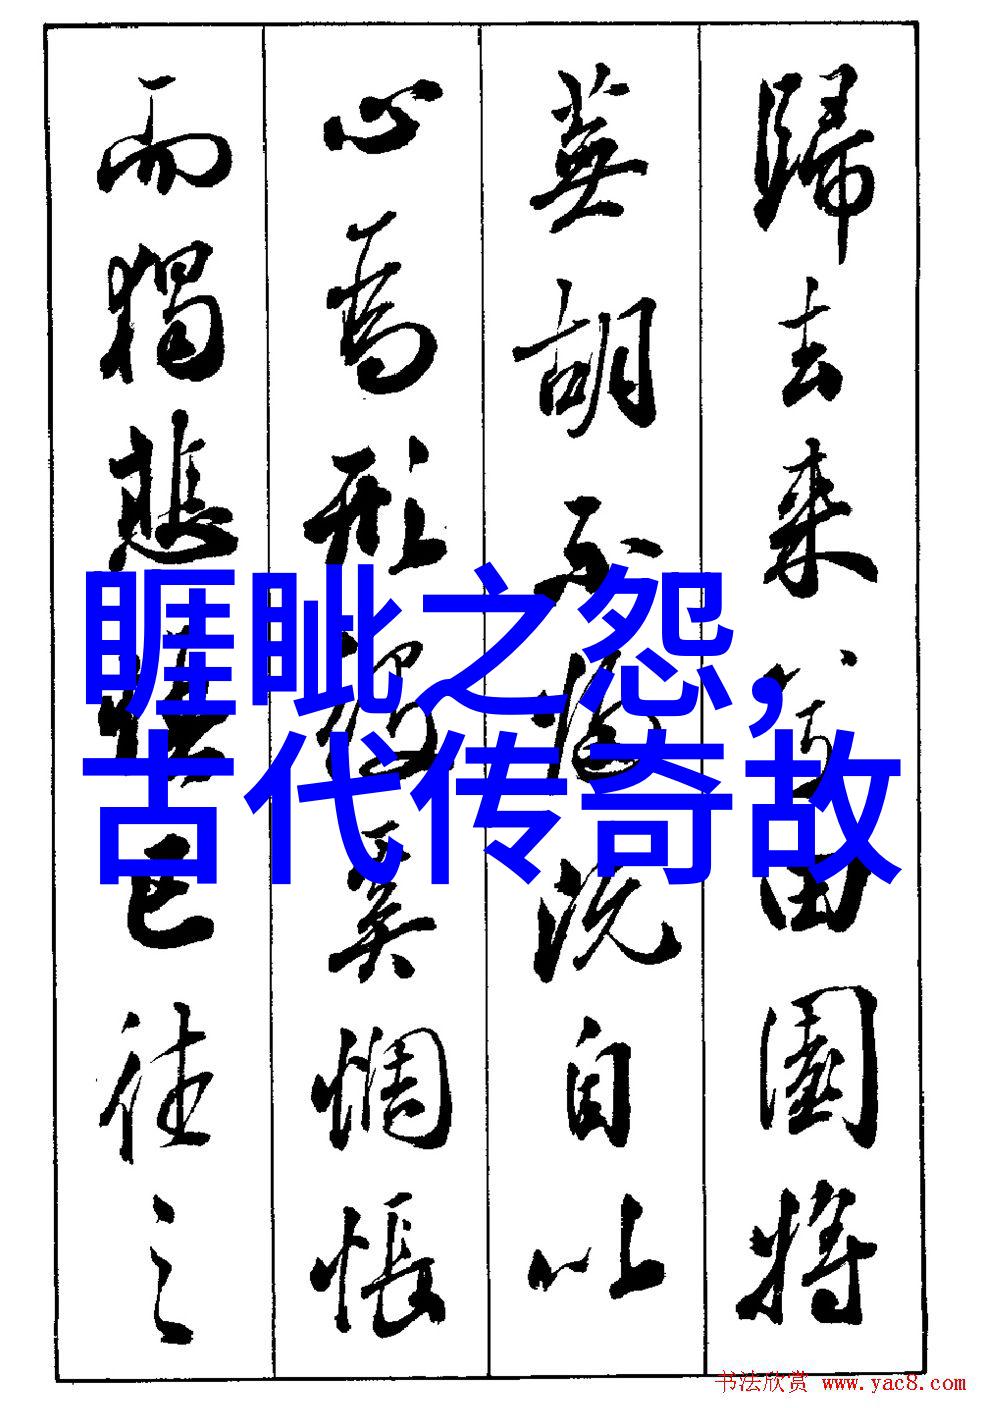 歸去来兮田園將
蕪胡不歸既自以
心為形役奚惆悵
而獨悲悟已往之
睚眦之怨,
古代传奇故
书法欣赏 www.yac8.com